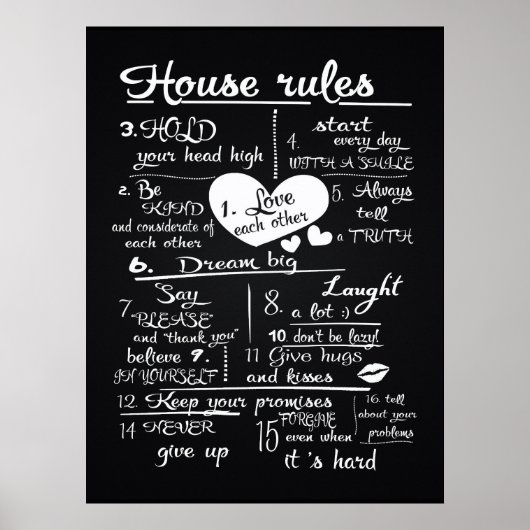 House rules
3. HOLD
your head high
4. start
every day
WITH A SMILE
2. Be
KIND
and considerate of
each other
1. Love
each other
5. Always
tell
a TRUTH
6. Dream big
7 Say
"PLEASE"
and "thank you"
8. Laught
a lot :)
believe 9.
IN YOURSELF
10. don't be lazy!
11 Give hugs
and kisses
12. Keep your promises
14 NEVER
give up
15 FORGIVE
even when
it's hard
16. tell
about your
problems